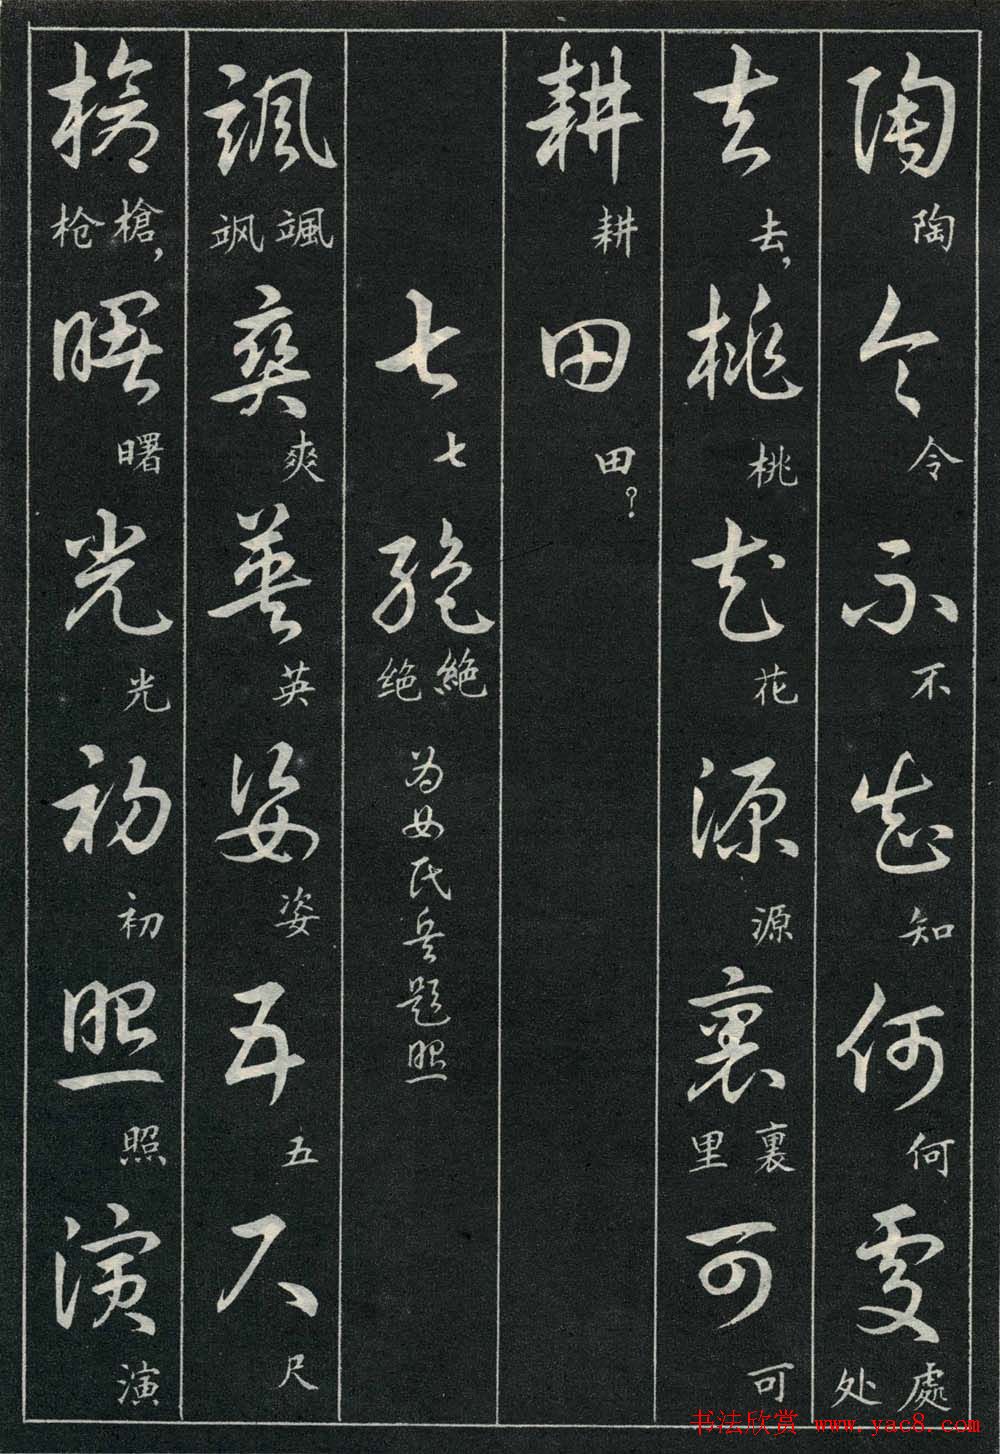 陶陶令令不不知知何何處處处
去去,桃桃花花源源裏裏里可可
耕耕田田?
七七絶絶绝 为女民兵題照
颯颯飒爽爽英英姿姿五五尺尺
槍槍,枪曙曙光光初初照照演演
书法欣赏 www.yac8.com